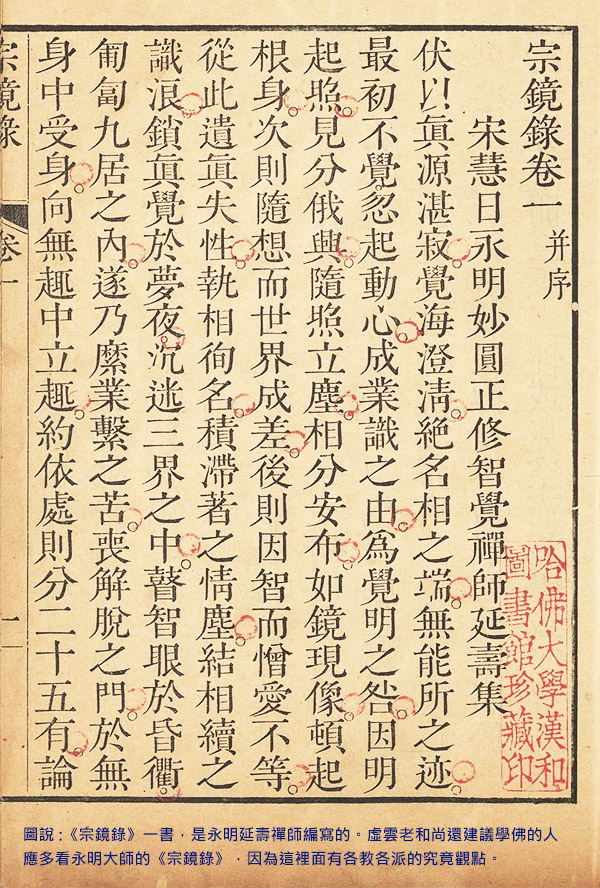 宗鏡錄卷一 并序
宋慧日永明妙圓正修智覺禪師延壽集
伏以眞源湛寂。覺海澄淸。絕名相之端。無能所之迹。
最初不覺。忽起動心。成業識之由。爲覺明之咎。因明
起照。見分俄興。隨照立塵。相分安布。如鏡現像。頓起
根身。次則隨想而世界成差。後則因智而憎愛不等。
從此遺眞失性。執相徇名。積滯著之情塵。結相續之
識浪。鎖眞覺於夢夜。沉迷三界之中。瞽智眼於昏衢。
匍匐九居之內。遂乃縻業繫之苦。喪解脫之門。於無
身中受身。向無趣中立趣。約依處則分二十五有。論
宗鏡錄 卷一 一
哈佛大學漢和
圖書館珍藏印
圖說：《宗鏡錄》一書，是永明延壽禪師編寫的。虛雲老和尚還建議學佛的人
應多看永明大師的《宗鏡錄》，因為這裡面有各教各派的究竟觀點。